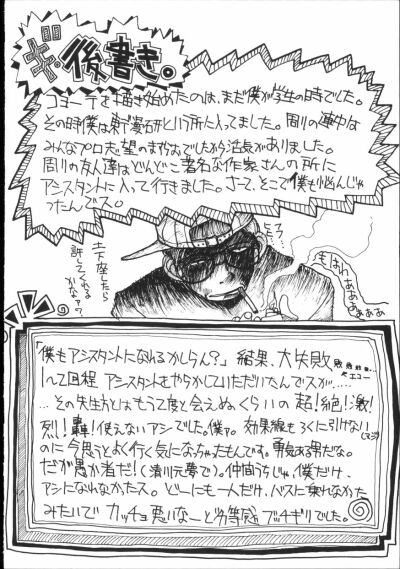 後書き。
コヨーテを描き始めたのは、まだ僕が学生の時でした。
その時僕は某漫研という所に入ってました。周りの連中は
みんなプロ志望のまんがおでしたから活気がありました。
周りの友人達はどんどこ著名な作家さんの所に
アシスタントに入って行きました。さーて、そこで僕も悩んじゃ
ったんでス。
土下座したら
許してくれる
かな?
「僕もアシスタントになれるかしらん?」結果、大失敗
エコー
1~2回程アシスタントをやらかしていただいたんでスが……
…その先生方とはもう2度と会えぬくらいの超!絶!激!
烈!轟!使えないアシでした。僕ァ。効果線もろくに引けない
のに今思うとよく行く気になったもんです。勇気ある男だな。
だが愚か者だ!(漬川元夢で)。仲間うちじゃ僕だけ、
アシになれなかったス。どーにも一人だけ、バスに乗れなかった
みたいでカッチョ悪いなーと劣等感ブッチギリでした。